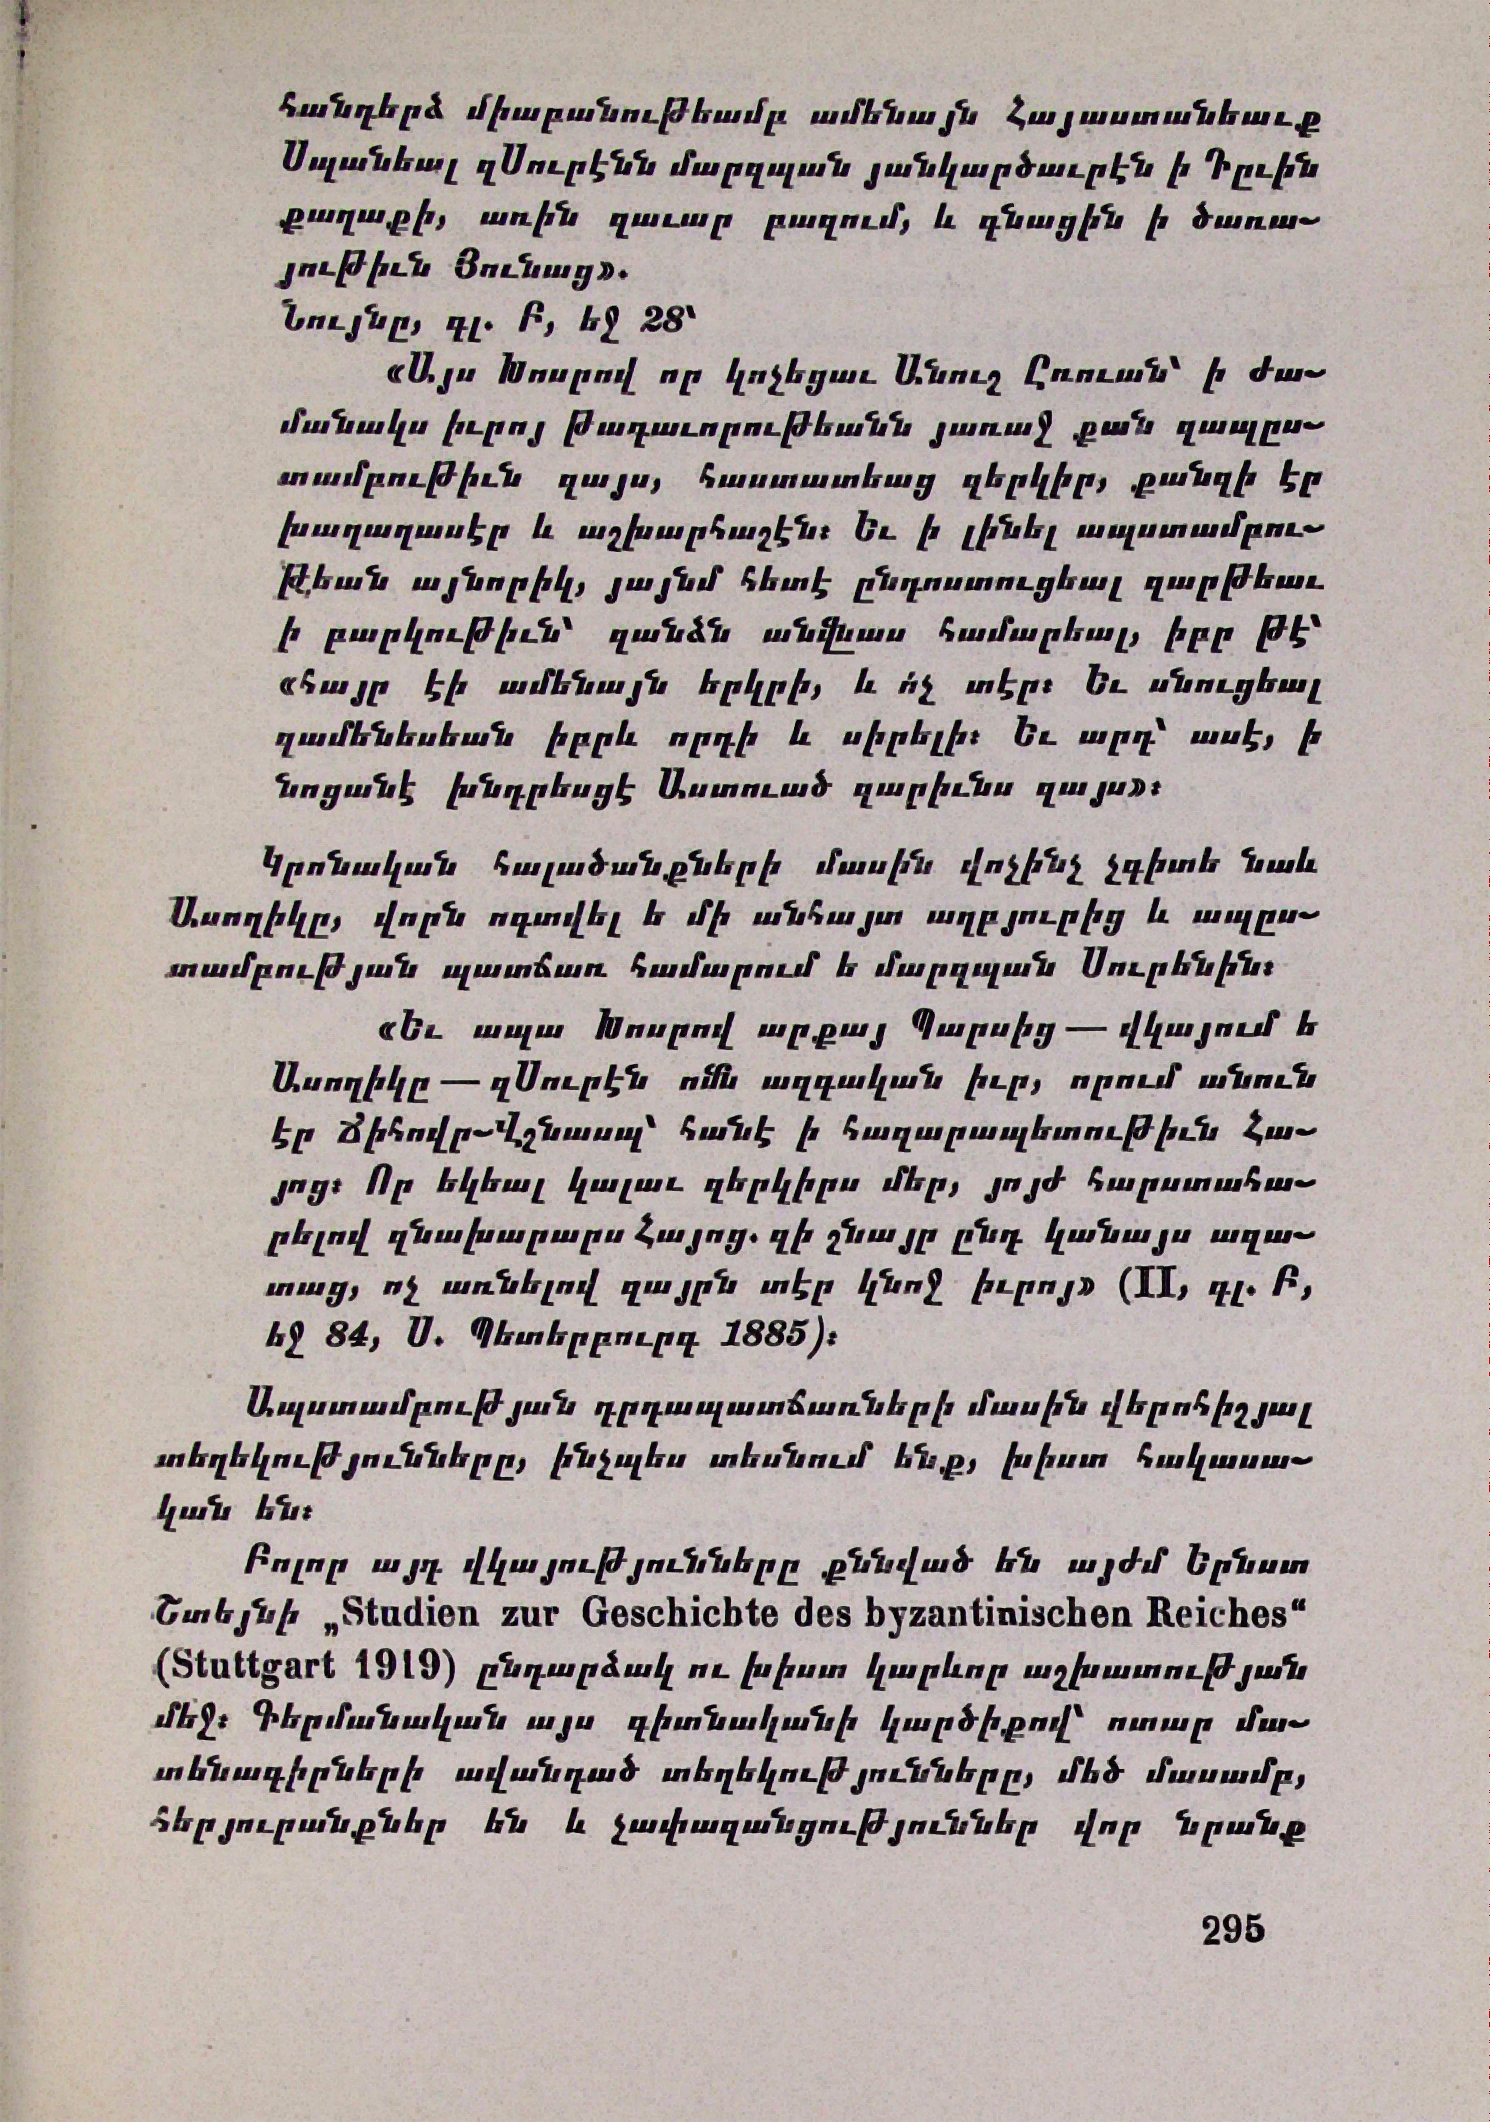 հանդերձ միաբանութեամբ ամենայն Հայաստանեաւք
Սպանեալ զՍուրէնն մարզպան յանկարծաւրէն ի Դըւին
քաղաքի, առին զաւար բազում, և գնացին ի ծառա-
յութիւն Յունաց».
Նույնը, գլ. Բ, եջ 28՝
«Այս Խոսրով որ կոչեցաւ Անուշ Ըռուան՝ ի ժա-
մանակս իւրոյ թագաւորութեանն յառաջ քան զապըս-
տամբութիւն զայս, հաստատեաց զերկիր, քանզի էր
խաղաղասէր և աշխարհաշէն։ Եւ ի լինել ապստամբու-
թեան այնորիկ, յայնմ հետէ ընդոստուցեալ զարթեաւ
ի բարկութիւն՝ զանձն անմնաս համարեալ, իբր թէ՝
«հայր էի ամենայն երկրի, և ո՛չ տէր։ Եւ սնուցեալ
զամենեսեան իբրև որդի և սիրելի։ Եւ արդ՝ ասէ, ի
նոցանէ խնդրեսցէ Աստուած զարիւնս զայս»։
Կրոնական հալածանքների մասին վոչինչ չգիտե նաև
Ասողիկը, վորն ոգտվել ե մի անհայտ աղբյուրից և ապըս-
տամբության պատճառ համարում ե մարզպան Սուրենին։
«Եւ ապա Խոսրով արքայ Պարսից — վկայում ե
Ասողիկը — զՍուրէն ոմն ազգական իւր, որում անուն
էր Ճիհովր-Վշնասպ՝ հանէ ի հազարապետութիւն Հա-
յոց։ Որ եկեալ կալաւ զերկիրս մեր, յոյժ հարստահա-
րելով զնախարարս Հայոց. զի շնայր ընդ կանայս ազա-
տաց, ոչ առնելով զայրն տէր կնոջ իւրոյ» (II, գլ. Բ,
եջ 84, Ս. Պետերբուրգ 1885)։
Ապստամբության դրդապատճառների մասին վերոհիշյալ
տեղեկությունները, ինչպես տեսնում ենք, խիստ հակասա-
կան են։
Բոլոր այդ վկայությունները քննված են այժմ Երնստ
Շտեյնի „Studien zur Geschichte des byzantinischen Reiches“
(Stuttgart 1919) ընդարձակ ու խիստ կարևոր աշխատության
մեջ։ Գերմանական այս գիտնականի կարծիքով՝ ոտար մա-
տենագիրների ավանդած տեղեկությունները, մեծ մասամբ,
հերյուրանքներ են և չափազանցություններ վոր նրանք
295